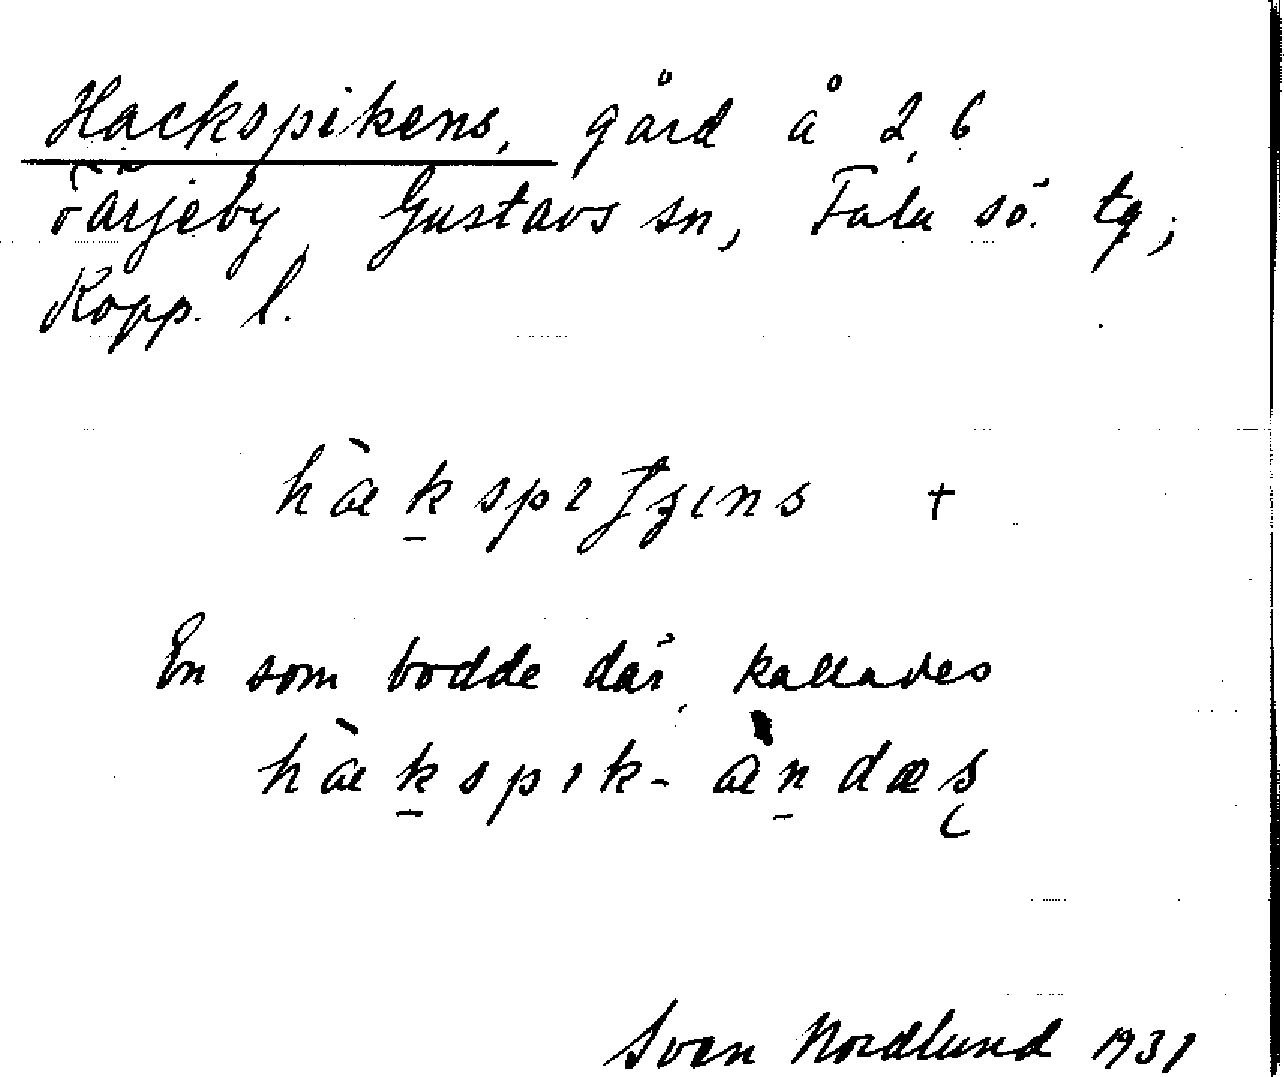 Hackspikens, gård å 2,6
Färjeby, Gustavs sn, Falu sö. tg;
Kopp. l.
hàkspiʃʒɩns +
En som bodde där, kallades
hàkspɩk-àndæs
Sven Nordlund 1931